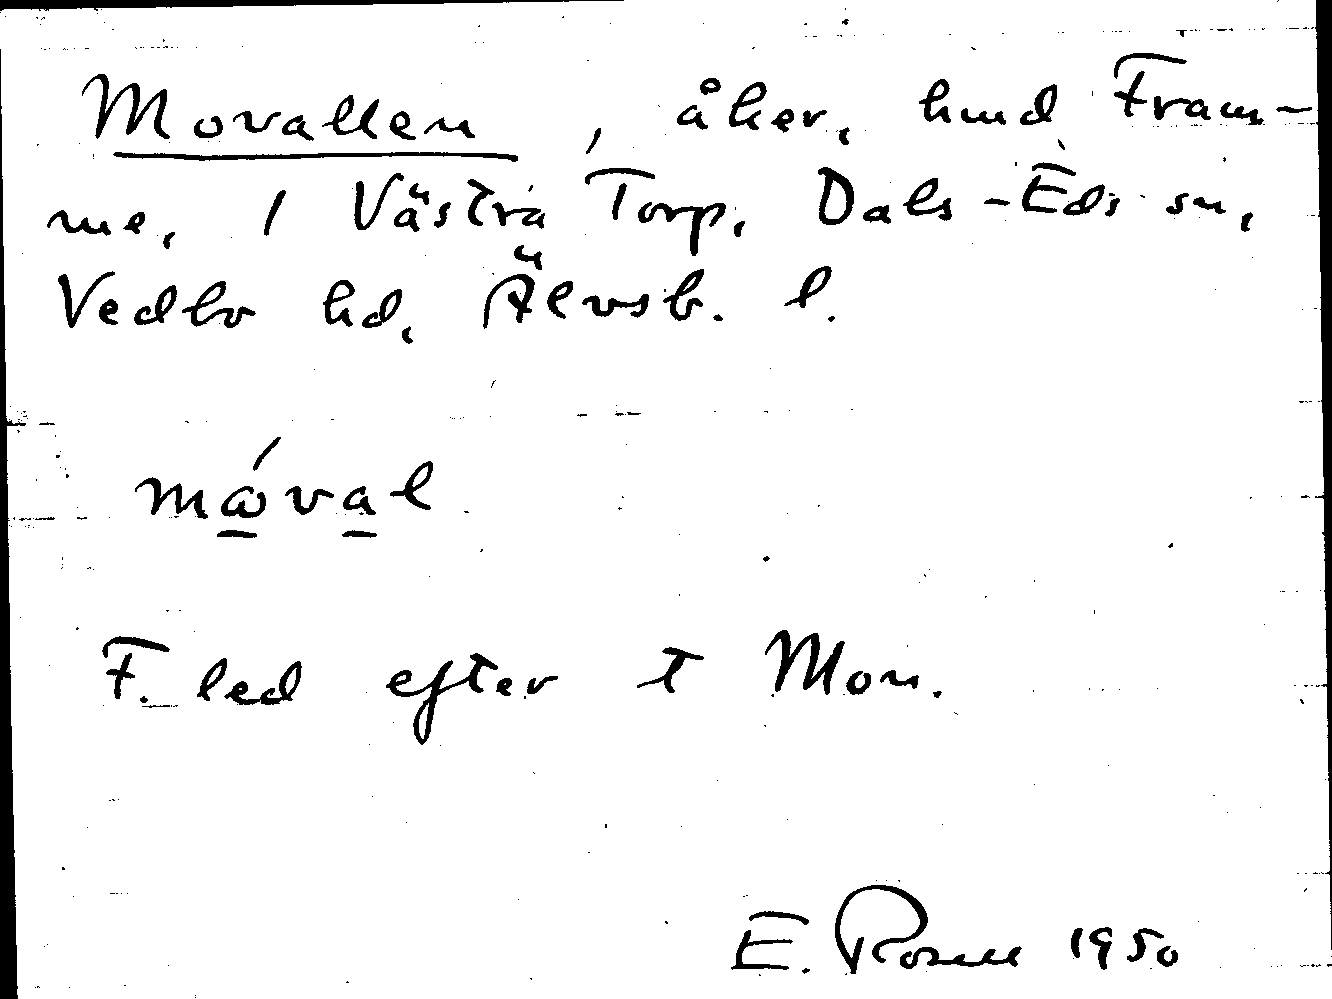 Movallen, åker, hmd Fram-
me, 1 Västra Torp, Dals-Eds sn,
Vedbo hd, Älvsb. l.
mɷ́val
F. led efter t Mon.
E. Rosell 1950